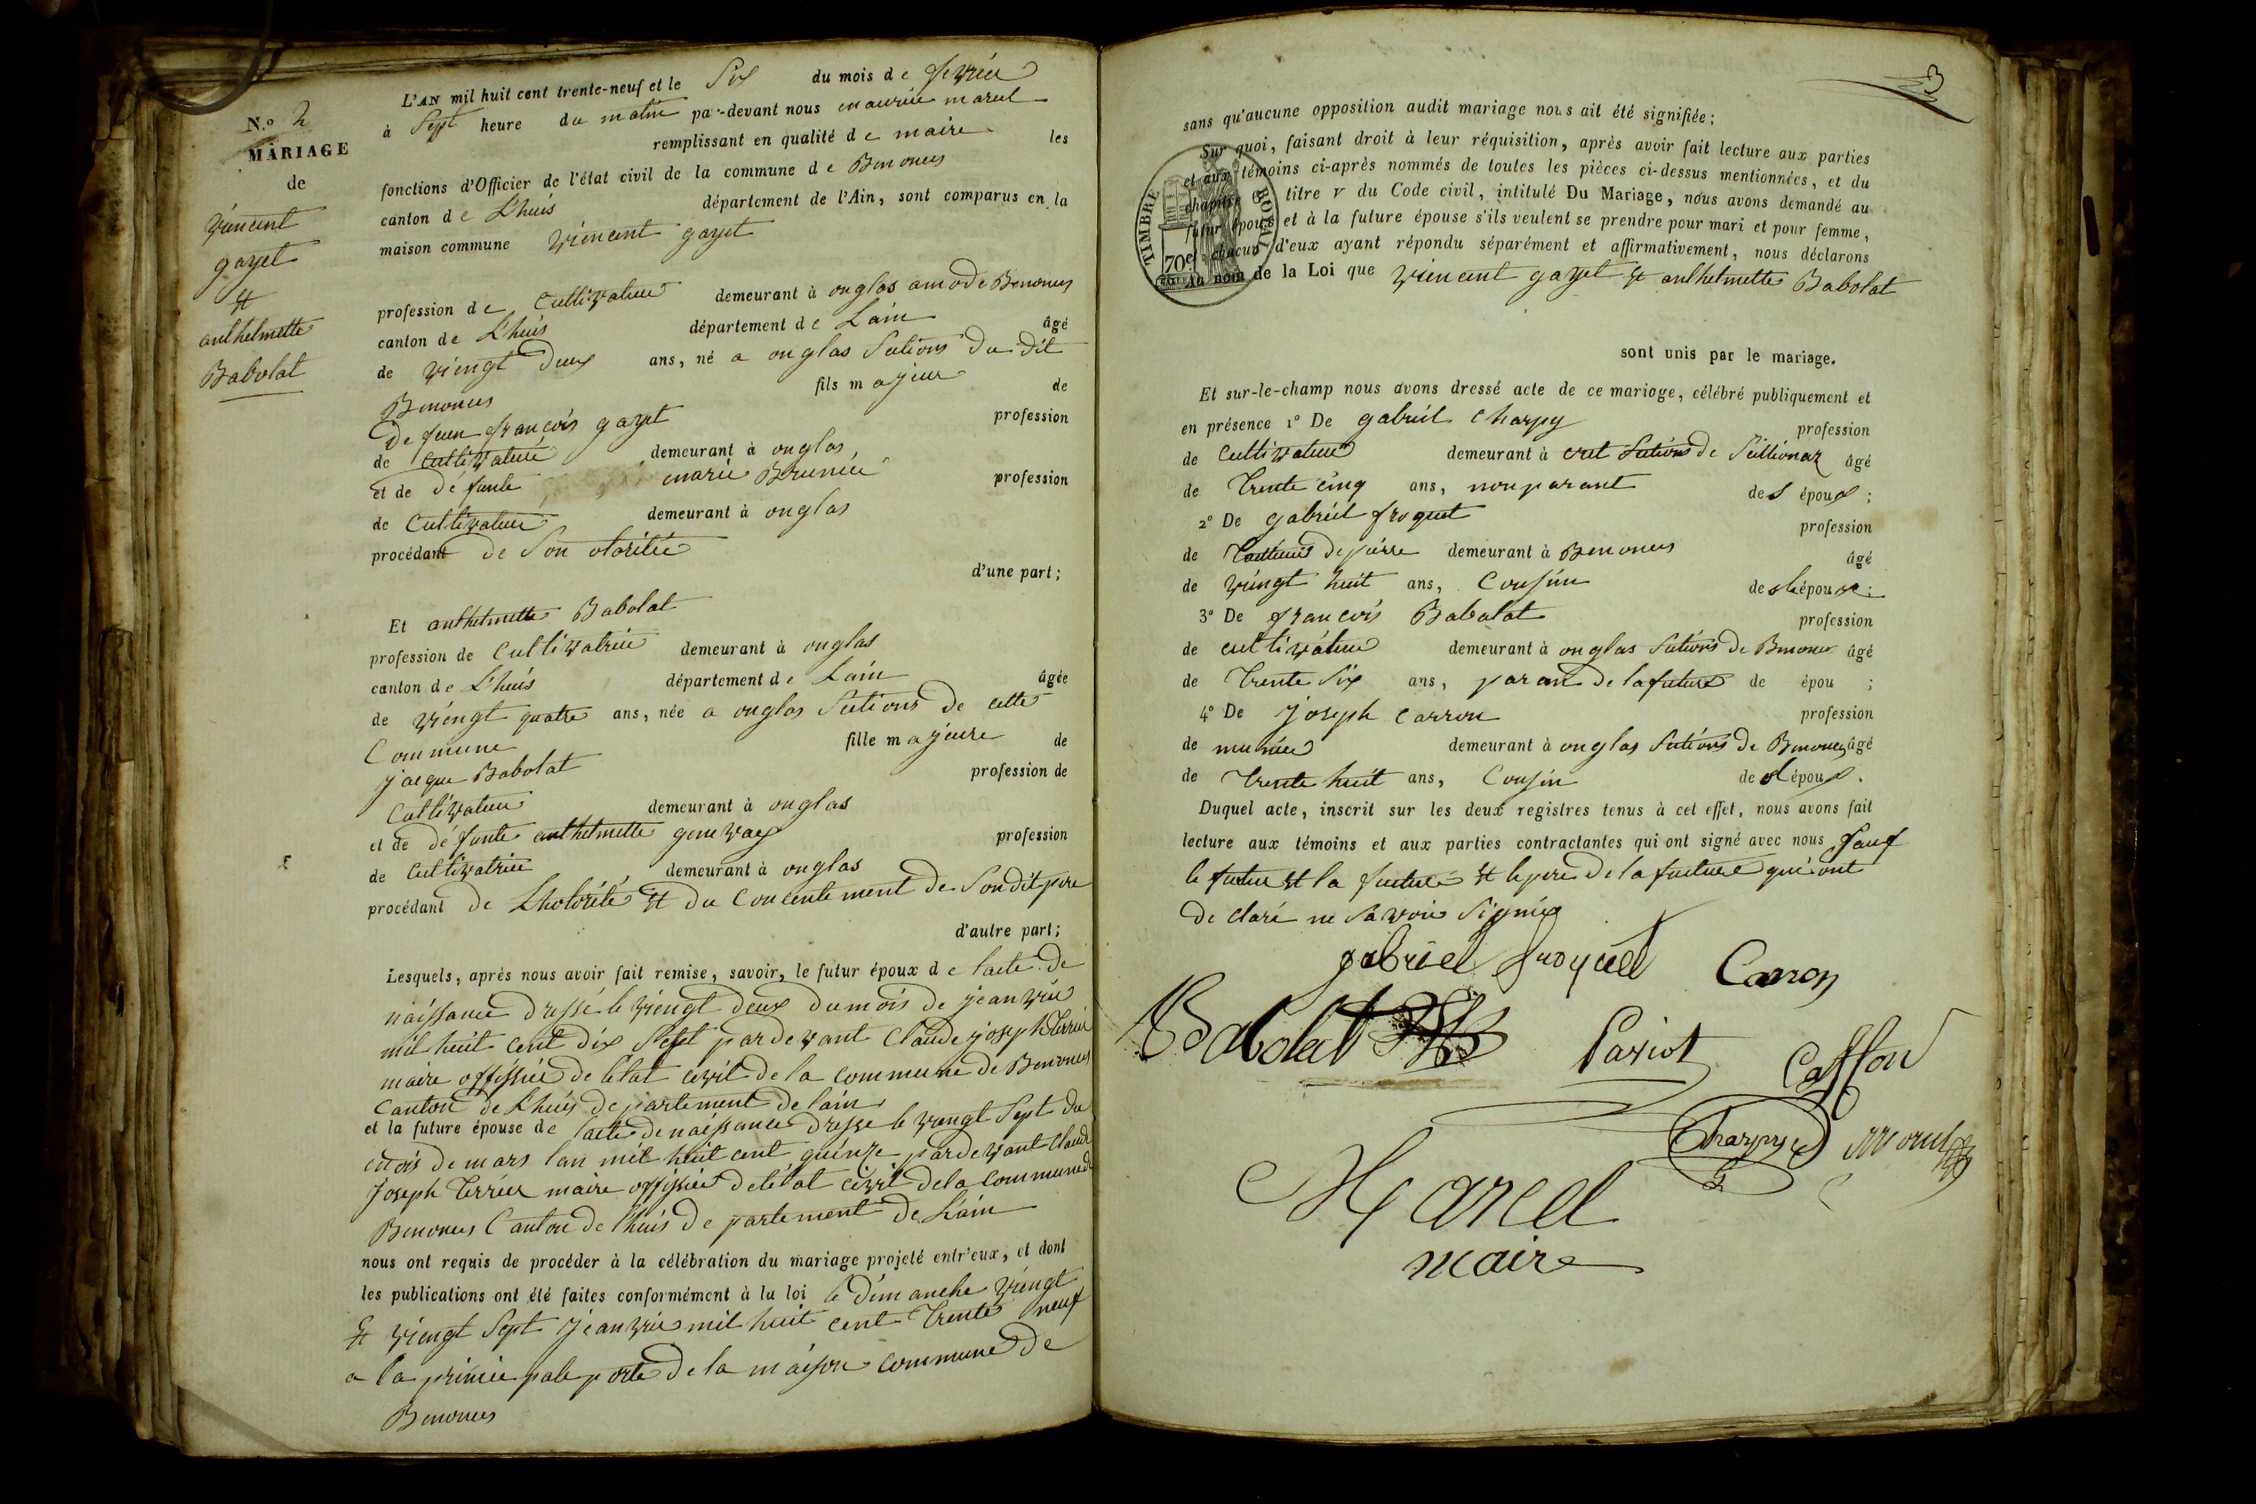 N.o 2
MARIAGE
de
vincent
gayet
et
anthelmette
Babolat
L'AN mil huit cent trente-neuf et le Six du mois de fevrier
à Sept heure du matin par-devant nous maurice marcel
remplissant en qualité de maire les
fonctions d'Officier de l'état civil de la commune de Benonces
canton de Lhuis département de l'Ain, sont comparus en la
maison commune viencent gayet
profession de Cultivateur demeurant à onglas amo de Benonces
canton de Lhuis département de Lain âgé
de viengt deux ans, né a onglas Sections du dit
Benonces fils majeur de
De feu françois gayet profession
de Cultivateur demeurant à onglas
et de défunte marie Brunier profession
de Cultivateur demeurant à onglas
procédant de Son otoritée
d'une part;
Et anthelmette Babolat
profession de Cultivatrice demeurant à onglas
canton de Lhuis département de Lain âgée
de viengt quatre ans, née a onglas Sections de cette
Commune fille majeure de
jacque Babolat profession de
Cultivateur demeurant à onglas
et de défunte anthelmette genevay profession
de Cultivatrice demeurant à onglas
procédant de Lhotorité et du Concentement de Son dit pere
d'autre part;
Lesquels, après nous avoir fait remise, savoir, le futur époux de lacte de
naissance dressé le viengt deux du mois de jeanvier
mil huit cent dix Sept par devant Claude joseph Terrier
maire offissier de létat civil de la commune de Benonces
Canton de Lhuis departement de lain
et la future épouse de lacte de naissance dresse le viengt Sept du
mois de mars lan mil huit cent quinze par devant Claude
Joseph Terrier maire offissier de létat civil de la commune de
Benonces Canton de lhuis departement de Lain
nous ont requis de procéder à la célébration du mariage projeté entr'eux, et dont
les publications ont été faites conformément à la loi le dimanche viengt
et viengt Sept jeanvier mil huit cent trente neuf
a la princie pale porte de la maison commune de
Benonces
3
sans qu'aucune opposition audit mariage nous ait été signifiée;
Sur quoi, faisant droit à leur réquisition, après avoir fait lecture aux parties
et aux témoins ci-après nommés de toutes les pièces ci-dessus mentionnées, et du
chapitre titre V du Code civil, intitulé Du Mariage, nous avons demandé au
futur époux et à la future épouse s'ils veulent se prendre pour mari et pour femme,
chacun d'eux ayant répondu séparément et affirmativement, nous déclarons
au nom de la Loi que viencent gayet et anthelmette Babolat
TIMBRE ROYAL
70c
sont unis par le mariage.
Et sur-le-champ nous avons dressé acte de ce mariage, célébré publiquement et
en présence 1° De gabriel Charpy profession
de Cultivateur demeurant à cret Sections de Seillonaz âgé
de Trente cinq ans, non parant des époux;
2° De gabriel froquet profession
de Tailleur de pierre demeurant à Benonces âgé
de viengt huit ans, Cousin de lépouse;
3° De françois Babolat profession
de cultivateur demeurant à onglas Sections de Benonces âgé
de Trente Six ans, parant de la future de épou ;
4° De joseph Carron profession
de munier demeurant à onglas Sections de Benonces âgé
de Trente huit ans, Cousin de lépoux.
Duquel acte, inscrit sur les deux registres tenus à cet effet, nous avons fait
lecture aux témoins et aux parties contractantes qui ont signé avec nous Sauf
le futur et la future et le pere de la future qui ont
de claré ne Savoir Signier
gabriel froquet Carron
Babolat Pariot Caffon
Charpy
Marcel
maire